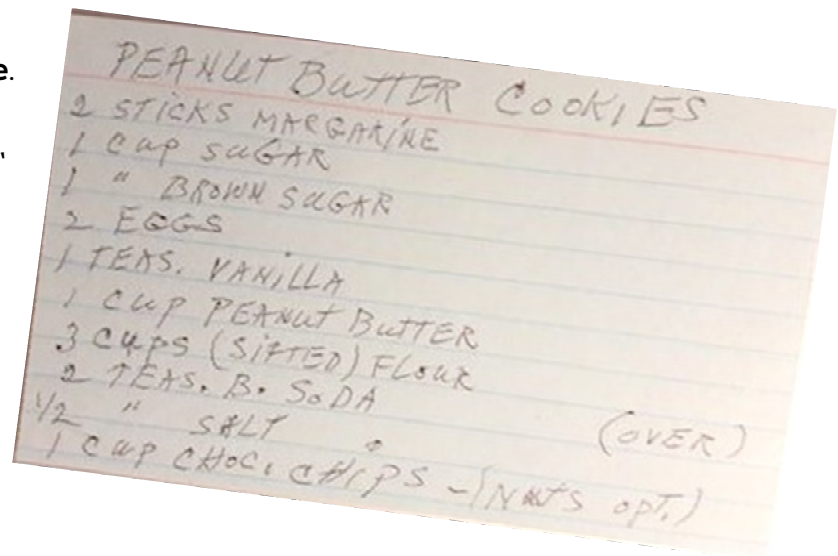 e.
PEANUT BUTTER COOKIES
2 STICKS MARGARINE
1 CUP SUGAR
1 " BROWN SUGAR
2 EGGS
1 TEAS. VANILLA
1 CUP PEANUT BUTTER
3 CUPS (SIFTED) FLOUR
2 TEAS. B. SODA
1/2 " SALT
(OVER)
1 CUP CHOC. CHIPS - (NUTS OPT.)